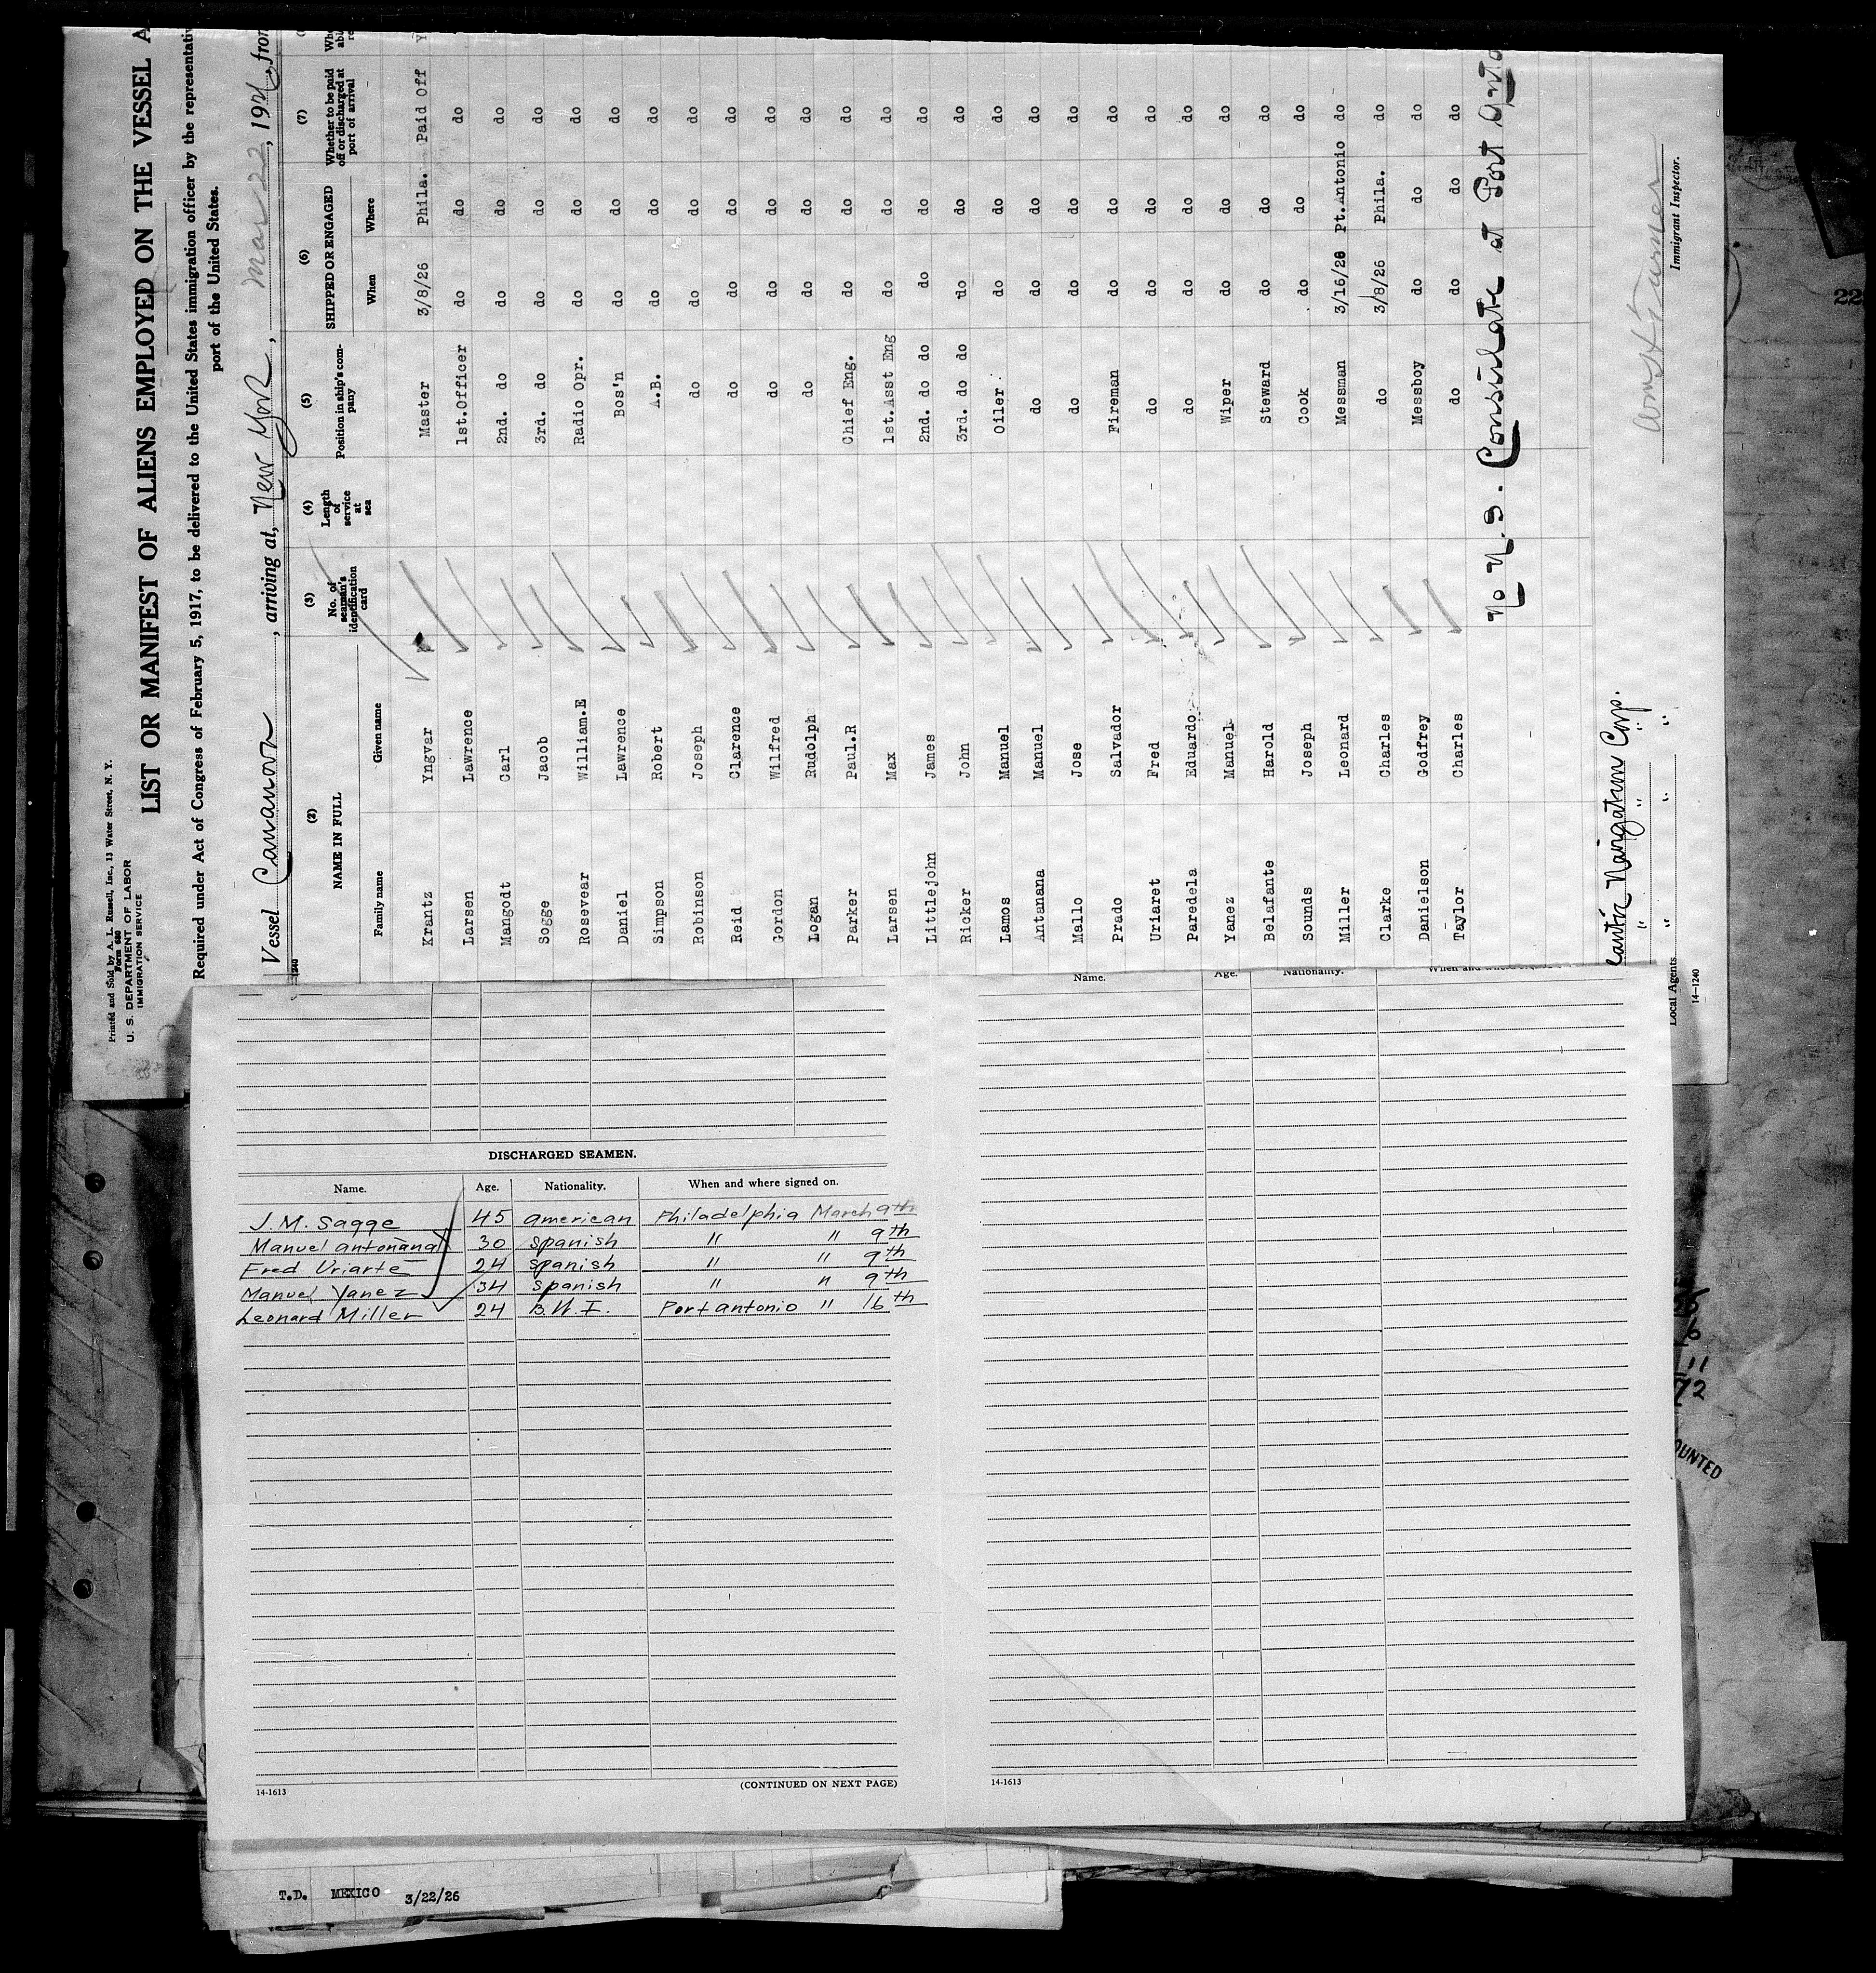 Printed and Sold by A. L. Russell, Inc., 13 Water Street, N. Y.
Form 680
U. S. DEPARTMENT OF LABOR
IMMIGRATION SERVICE
LIST OR MANIFEST OF ALIENS EMPLOYED ON THE VESSEL A
Required under Act of Congress of February 5, 1917, to be delivered to the United States immigration officer by the representativ
port of the United States.
Vessel , arriving at, New York, Mar 22, 1926, from
(2) (3) (4) (5) (6) (7)
NAME IN FULL No. of seaman's identification card Length of service at sea Position in ship's company SHIPPED OR ENGAGED Whether to be paid off or discharged at port of arrival
Family name Given name When Where
Krantz Yngvar Master 3/8/26 Phila. Paid Off Y
Larsen Lawrence 1st.Officer do do do
Mangodt Carl 2nd. do do do do
Sogge Jacob 3rd. do do do do
Rosevear William.E Radio Opr. do do do
Daniel Lawrence Bos'n do do do
Simpson Robert A.B. do do do
Robinson Joseph do do do do
Reid Clarence do do do do
Gordon Wilfred do do do do
Logan Rudolph do do do do
Parker Paul.R Chief Eng. do do do
Larsen Max 1st.Asst Eng do do do
Littlejohn James 2nd. do do do do do
Ricker John 3rd. do do do do do
Lamos Manuel Oiler do do do
Antanana Manuel do do do do
Mallo Jose do do do do
Prado Salvador Fireman do do do
Uriaret Fred do do do do
Paredela Eduardo do do do do
Yanez Manuel Wiper do do do
Belafante Harold Steward do do do
Sounds Joseph Cook do do do
Miller Leonard Messman 3/16/26 Pt.Antonio do
Clarke Charles do 3/8/26 Phila. do
Danielson Godfrey Messboy do do do
Taylor Charles do do do do
No U.S. Consulate at Port
Navigation Corp.
Local Agents
14-1240
Immigrant Inspector.
Name. Age. Nationality.
DISCHARGED SEAMEN.
Name. Age. Nationality. When and where signed on.
J.M. Sagge 45 american Philadelphia March 9th
Manuel antoñana 30 spanish " " 9th
Fred Uriarte 24 spanish " " 9th
Manuel Yanez 34 spanish " " 9th
Leonard Miller 24 B.W.I. Port antonio " 16th
14-1613 (CONTINUED ON NEXT PAGE)
14-1613
22
6
11
72
OUNTED
T.D. MEXICO 3/22/26